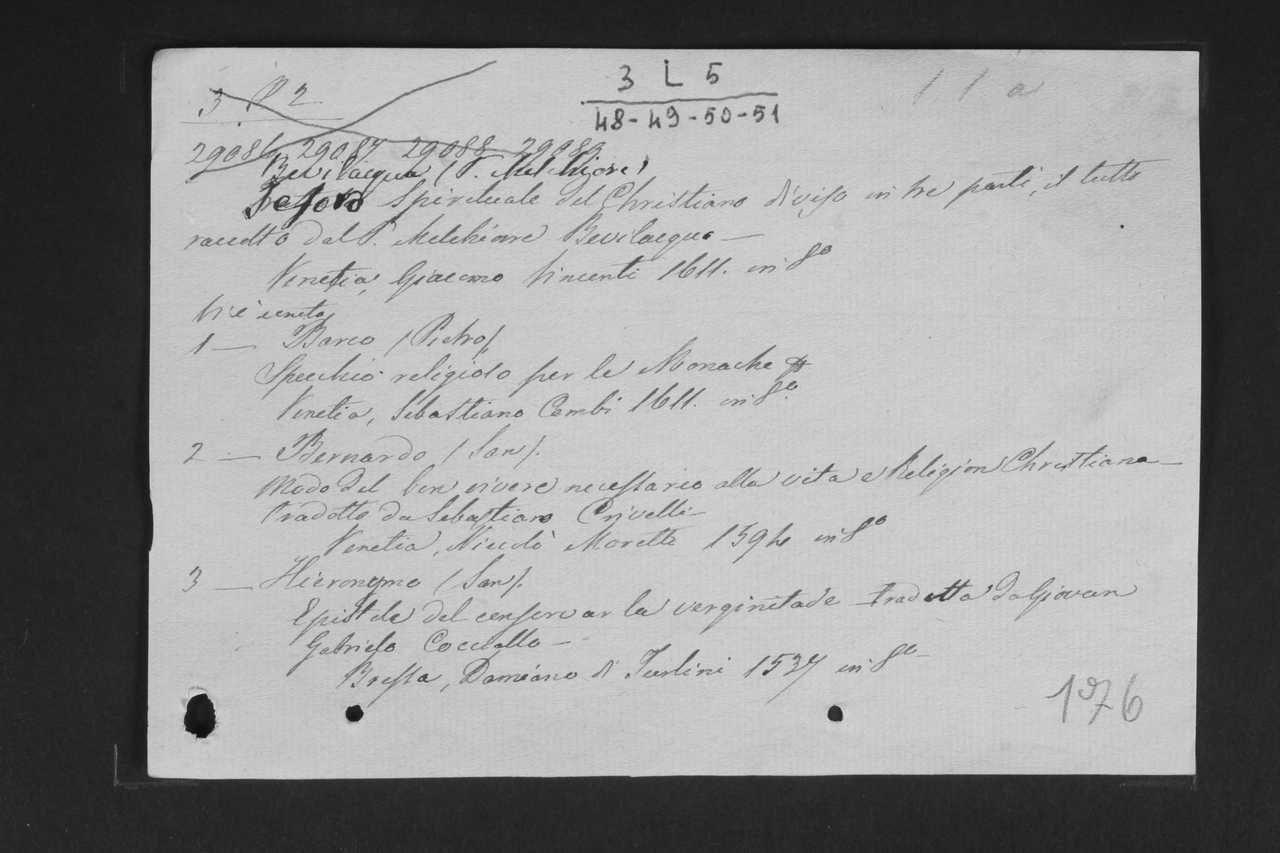 3 L 5
48-49-50-51
11 a
3. P 2
29086 29087 29088 29089
Bevilacqua (P. Melchiore)
Tesoro Spirituale del Christiano diviso in tre parti, il tutto
raccolto dal P. Melchiore Bevilacqua —
Venetia, Giacomo Vincenti 1611. in 8º
Vi è unito
1 — Barco (Pietro).
Specchio religioso per le Monache
Venetia, Sebastiano Combi 1611. in 8º
2 — Bernardo (San).
Modo del ben vivere necessario alla vita e Religion Christiana —
tradotto da Sebastiano Crivelli —
Venetia, Nicolò Moretti 1594 in 8º
3 — Hieronymo (San).
Epistola del conservar la verginitade tradotta da Giovan
Gabriele —
Bressa, Damiano di Turlini 1537 in 8º —
176